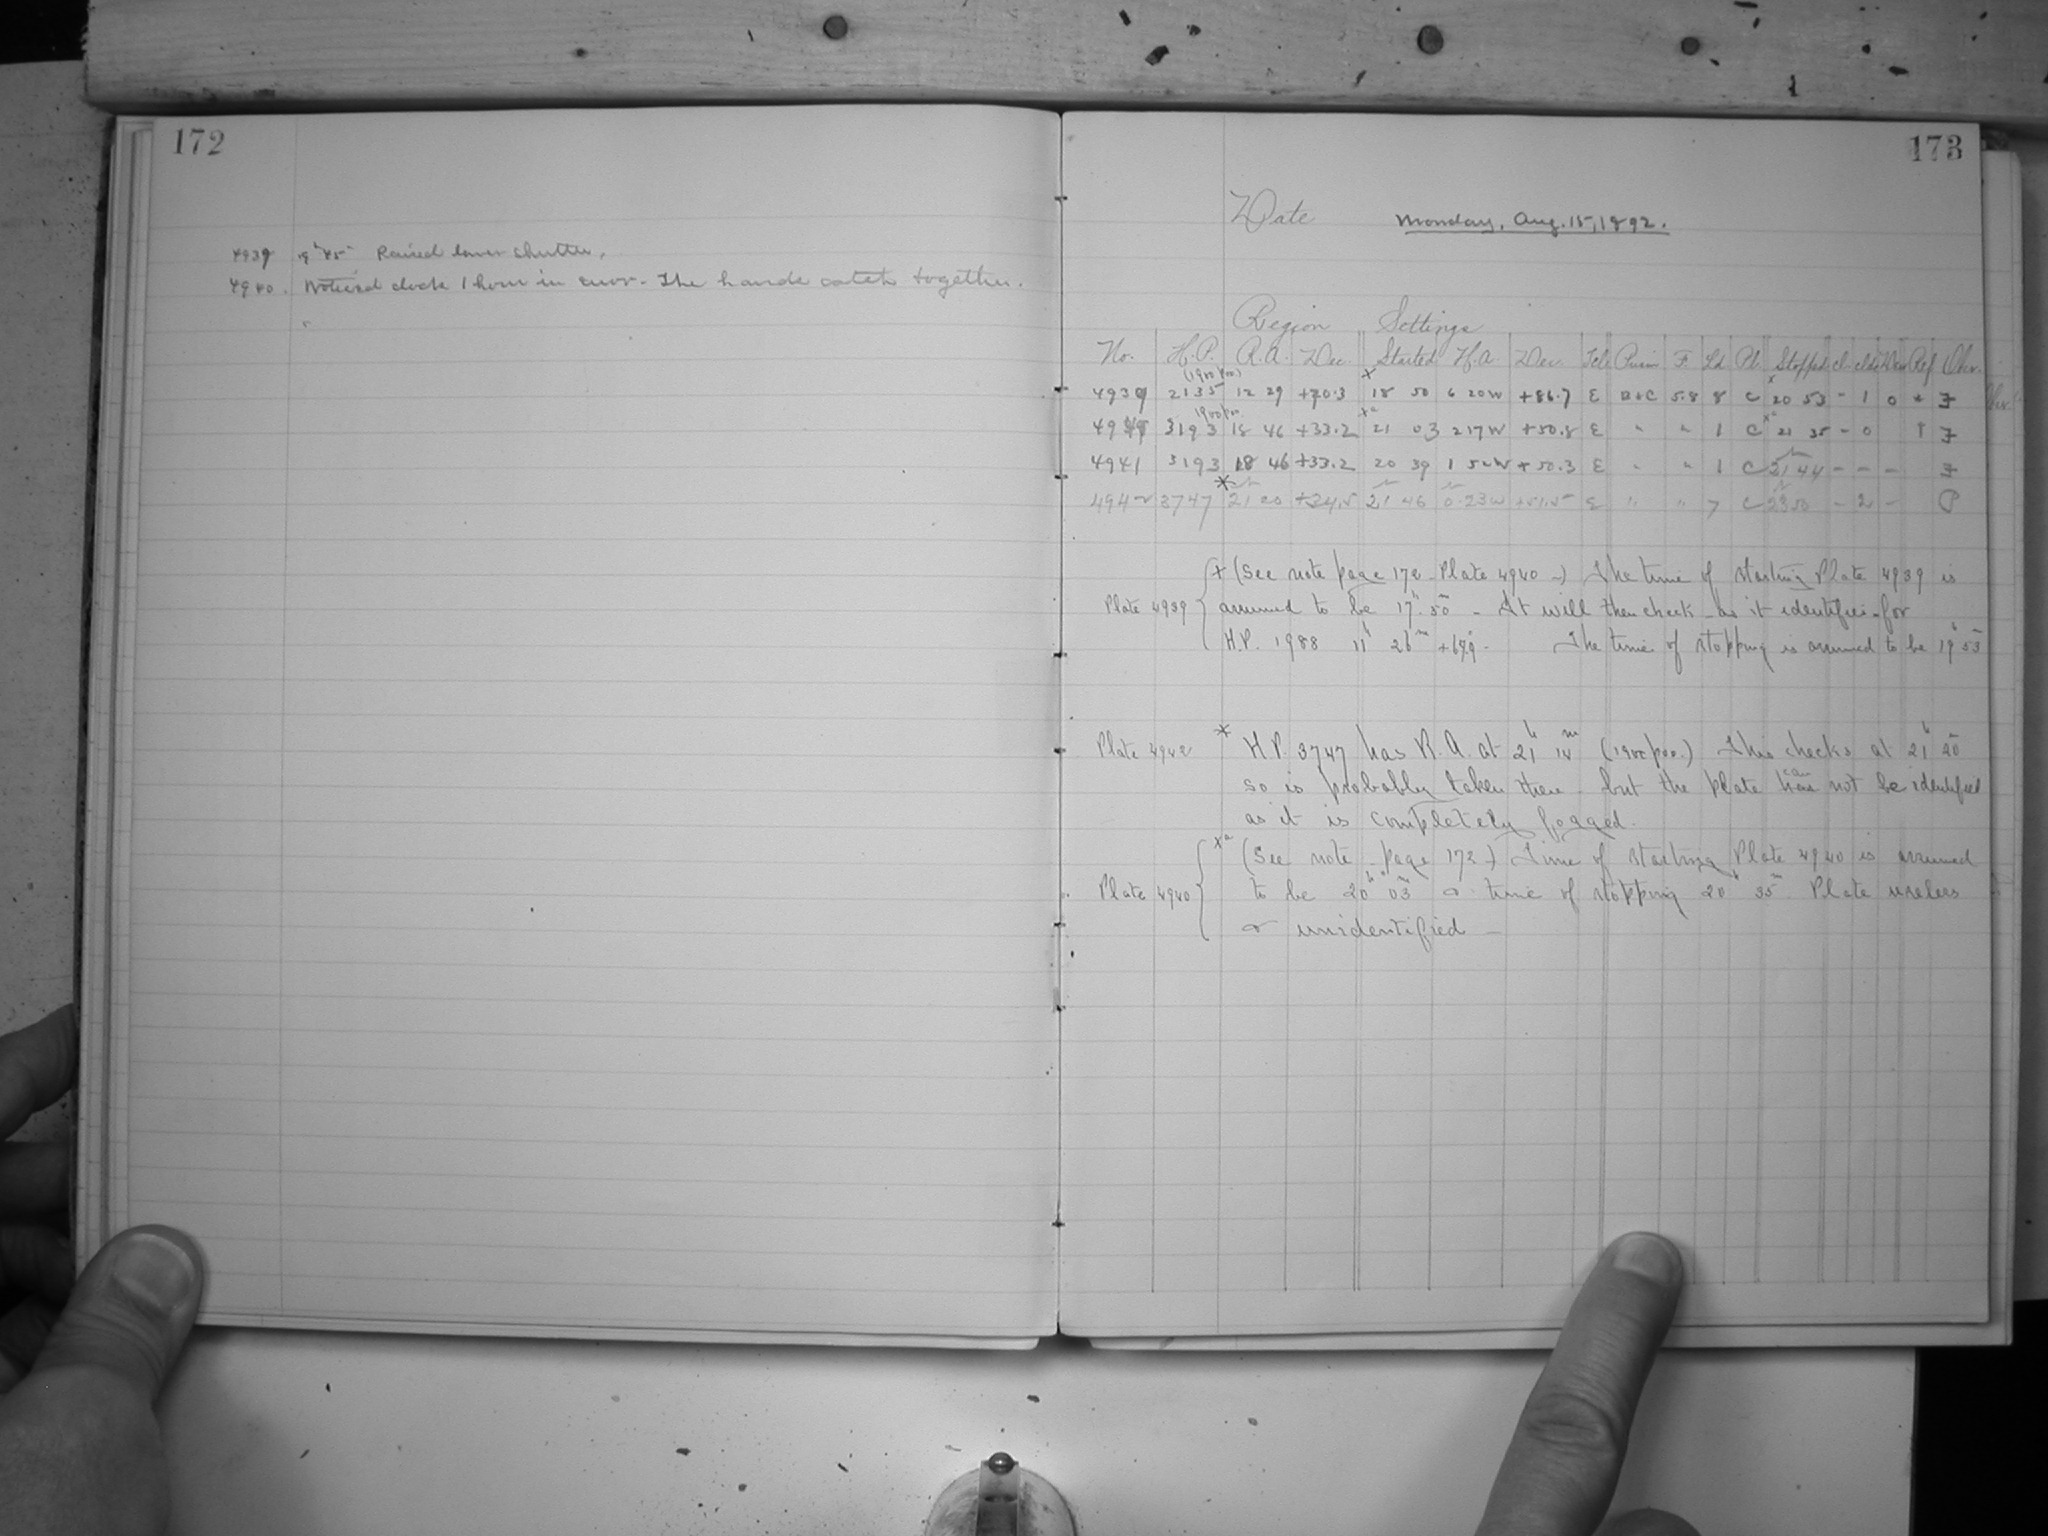 172
4939 19h 45m Raised lower shutter.
4940. Noticed clock 1 hour in error. The hands catch together.
173
Date Monday, Aug. 15, 1892.
Region Settings
No. H.P. R.A. Dec. Started H.A. Dec. Tele Prism F. Ld Pl. Stopped Cl. Clds Dew Ref Obsr.
(1900 pos.) x
4939 2135 12 29 +70.3 18 50 6 20W +86.7 E B+C 5.8 8 C x 20 53 - 1 0 * F
1900 pos. xa
4940 3193 18 46 +33.2 21 03 2 17W +50.8 E " " 1 C xa 21 35 - 0 F
4941 3193 18 46 +33.2 20 39 1 52W +50.3 E " " 1 C 21 44 - - - F
4942 3747 * 21 20 +34.5 21 46 0.23W +51.5 E " " 7 C 23 50 - 2 - P
Plate 4939 x (See note page 172 - Plate 4940 -) The time of starting Plate 4939 is
assumed to be 17h 50m - It will then check - as it identifies - for
H.P. 1988 11h 26m +67.9 - The time of stopping is assumed to be 19h 53m
Plate 4942 * H.P. 3747 has R.A. at 21h 14m (1900 pos.) This checks at 21h 20m
so is probably taken there - but the plate can not be identified
as it is completely fogged.
Plate 4940 xa (See note - page 172 -) Time of starting Plate 4940 is assumed
to be 20h 03m & time of stopping 20h 35m Plate useless
& unidentified -